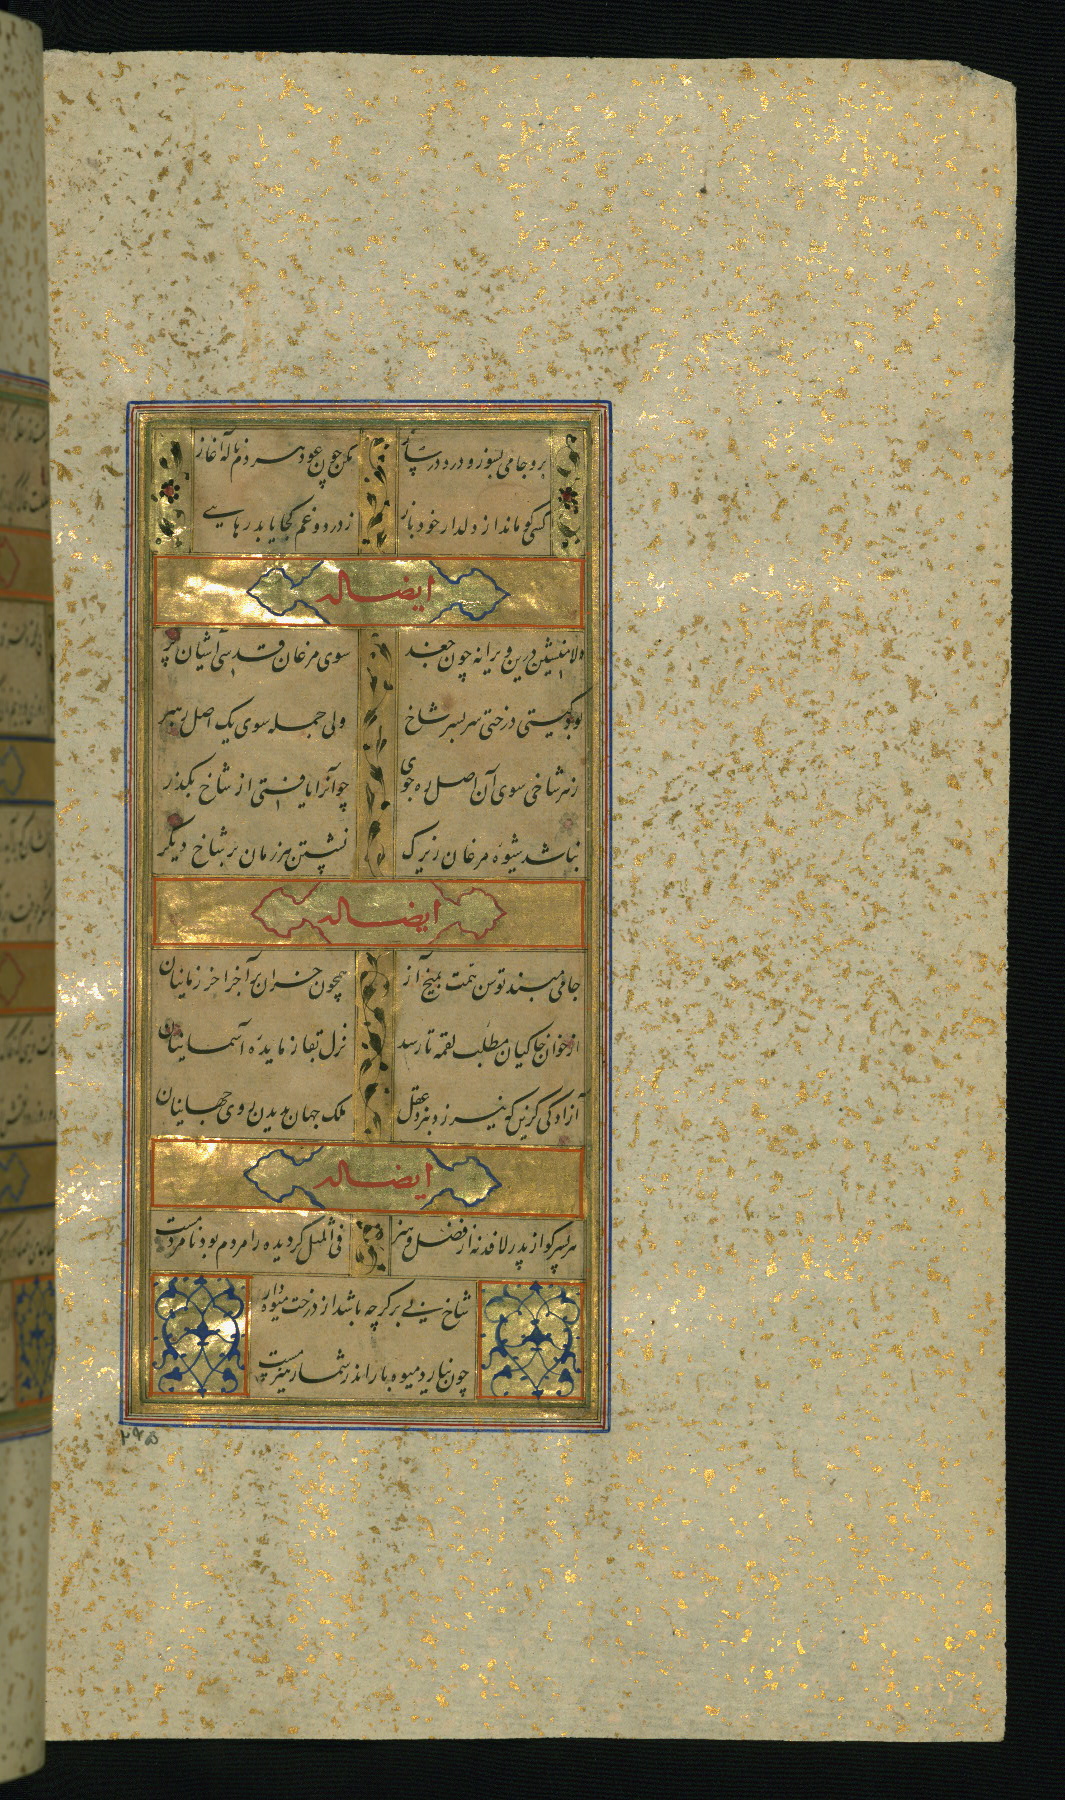 برو جامی بسوز و درد در ساز
مکن چون عود هر دم ناله آغاز
کسی کو ماند از دلدار خود باز
ز درد و غم کجا یابد رهایی
ایضا له
دلا منشین درین ویرانه چون جغد
سوی مرغان قدسی آشیان پر
بود گیتی درختی سر بسر شاخ
ولی جمله سوی یک اصل رهبر
ز هر شاخی سوی آن اصل ره جوی
چو آنرا یافتی از شاخ بگذر
نباشد شیوه مرغان زیرک
نشستن هر زمان بر شاخ دیگر
ایضا له
جامی مبند توسن همت بمیخ آز
همچون خران بر آخر آخر زمانیان
از خوان خاکیان مطلب لقمه تا رسد
نزل بقا ز مایده آسمانیان
آزادگی گزین که نیرزد بنزد عقل
ملک جهان بدیدن روی جهانیان
ایضا له
هر پسر کو از پدر لافد نه از فضل و هنر
فی المثل گر دیده را مردم بود نامردمست
شاخ بی بر گرچه باشد از درخت میوه دار
چون نیارد میوه بار اندر شمار هیزمست
۲۹۵